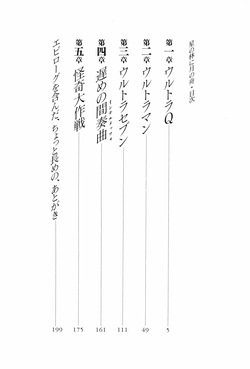 星の林に月の舟・目次
第一章 ウルトラQ 5
第二章 ウルトラマン 49
第三章 ウルトラセブン 111
第四章 遅めの間奏曲 161
第五章 怪奇大作戦 175
エピローグを含んだ、ちょっと長めの、あとがき 199